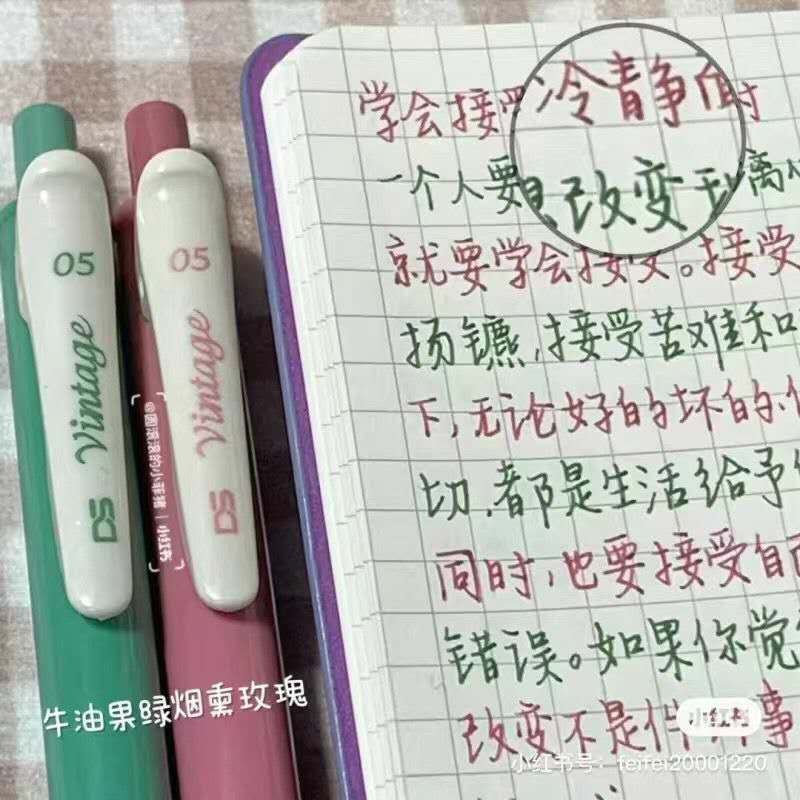 05
Vintage
DS
05
Vintage
DS
@圆滚滚的小菲猪 | 小红书
牛油果绿烟熏玫瑰
学会接受
冷静
时
一个人要
改变
离
就要学会接受。接受
扬镳,接受苦难和
下,无论好的坏的
切,都是生活给予
同时,也要接受自
错误。如果你觉
改变不是件
事
小红书
小红书号:feifei20001220